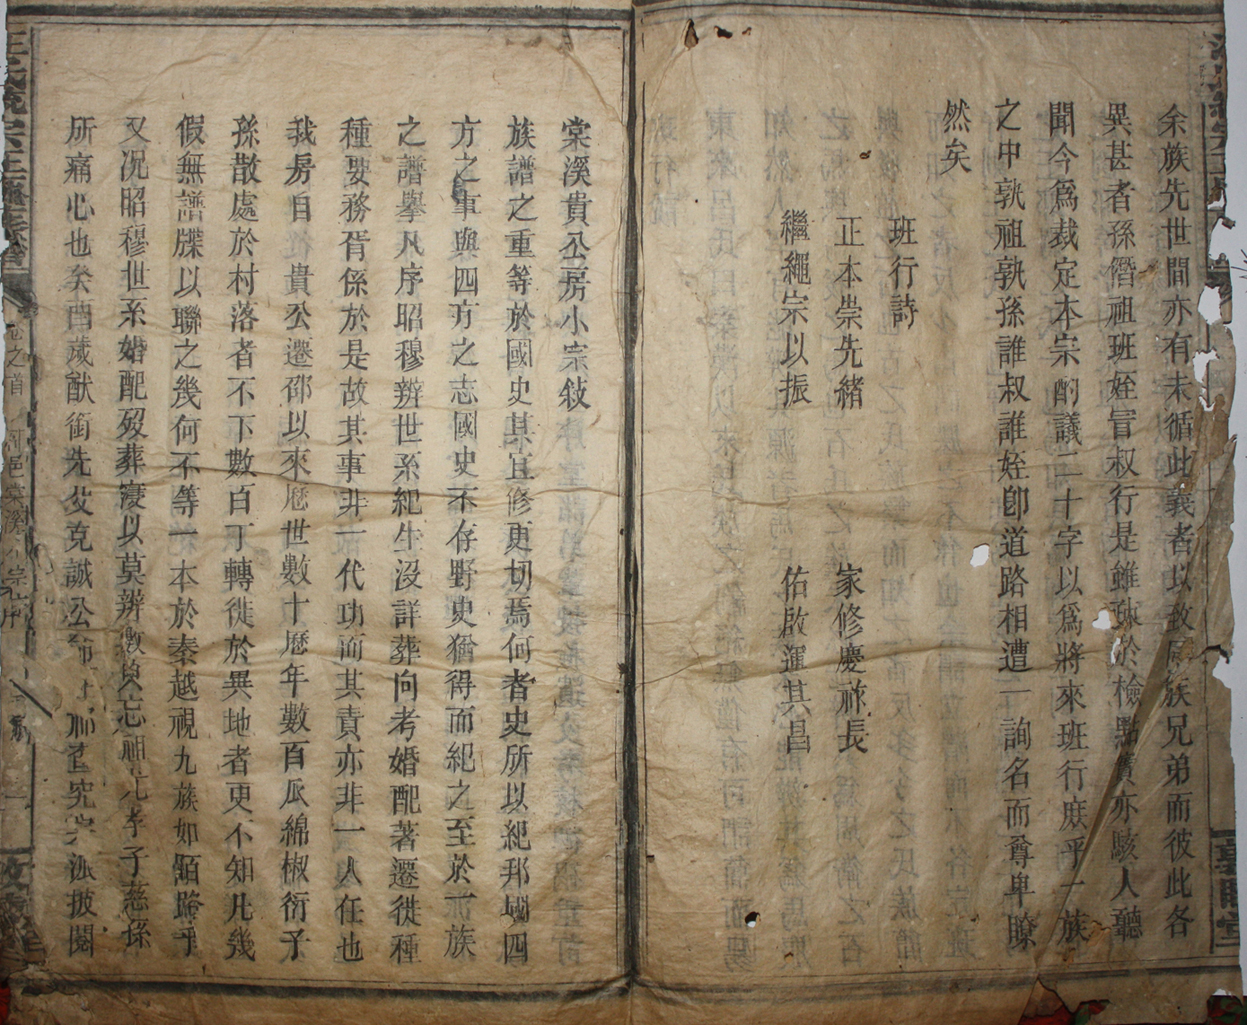 余族先世間亦有未循此義者以致族兄弟而彼此各
異甚者孫僭祖班姪冒叔行是雖疎於檢點實亦駭人聽
聞今爲裁定本宗酌議二十字以爲將來班行庶乎一族
之中孰祖孰孫誰叔誰姪卽道路相遭一詢名而尊卑瞭
然矣
班行詩
正本崇先緒 家修慶祚長
繼繩宗以振 佑啟運其昌
棠溪貴公房小宗敍
族譜之重等於國史其宜修更切焉何者史所以紀邦國四
方之事與四方之志國史不存野史猶得而紀之至於一族
之譜擧凡序昭穆辨世系紀生沒詳葬向考婚配著遷徙種
種要務胥係於是故其事非一代功而其責亦非一人任也
我房自 貴公遷邵以來歷世數十歷年數百瓜綿椒衍子
孫散處於村落者不下數百丁轉徙於異地者更不知凡幾
假無譜牒以聯之幾何不等一本於秦越視九族如陌路乎
又况昭穆世系婚配歿葬寖以莫辨數典忘祖尤孝子慈孫
所痛心也癸酉歲猷銜先父克誠公命 究 派披閱
卷之首